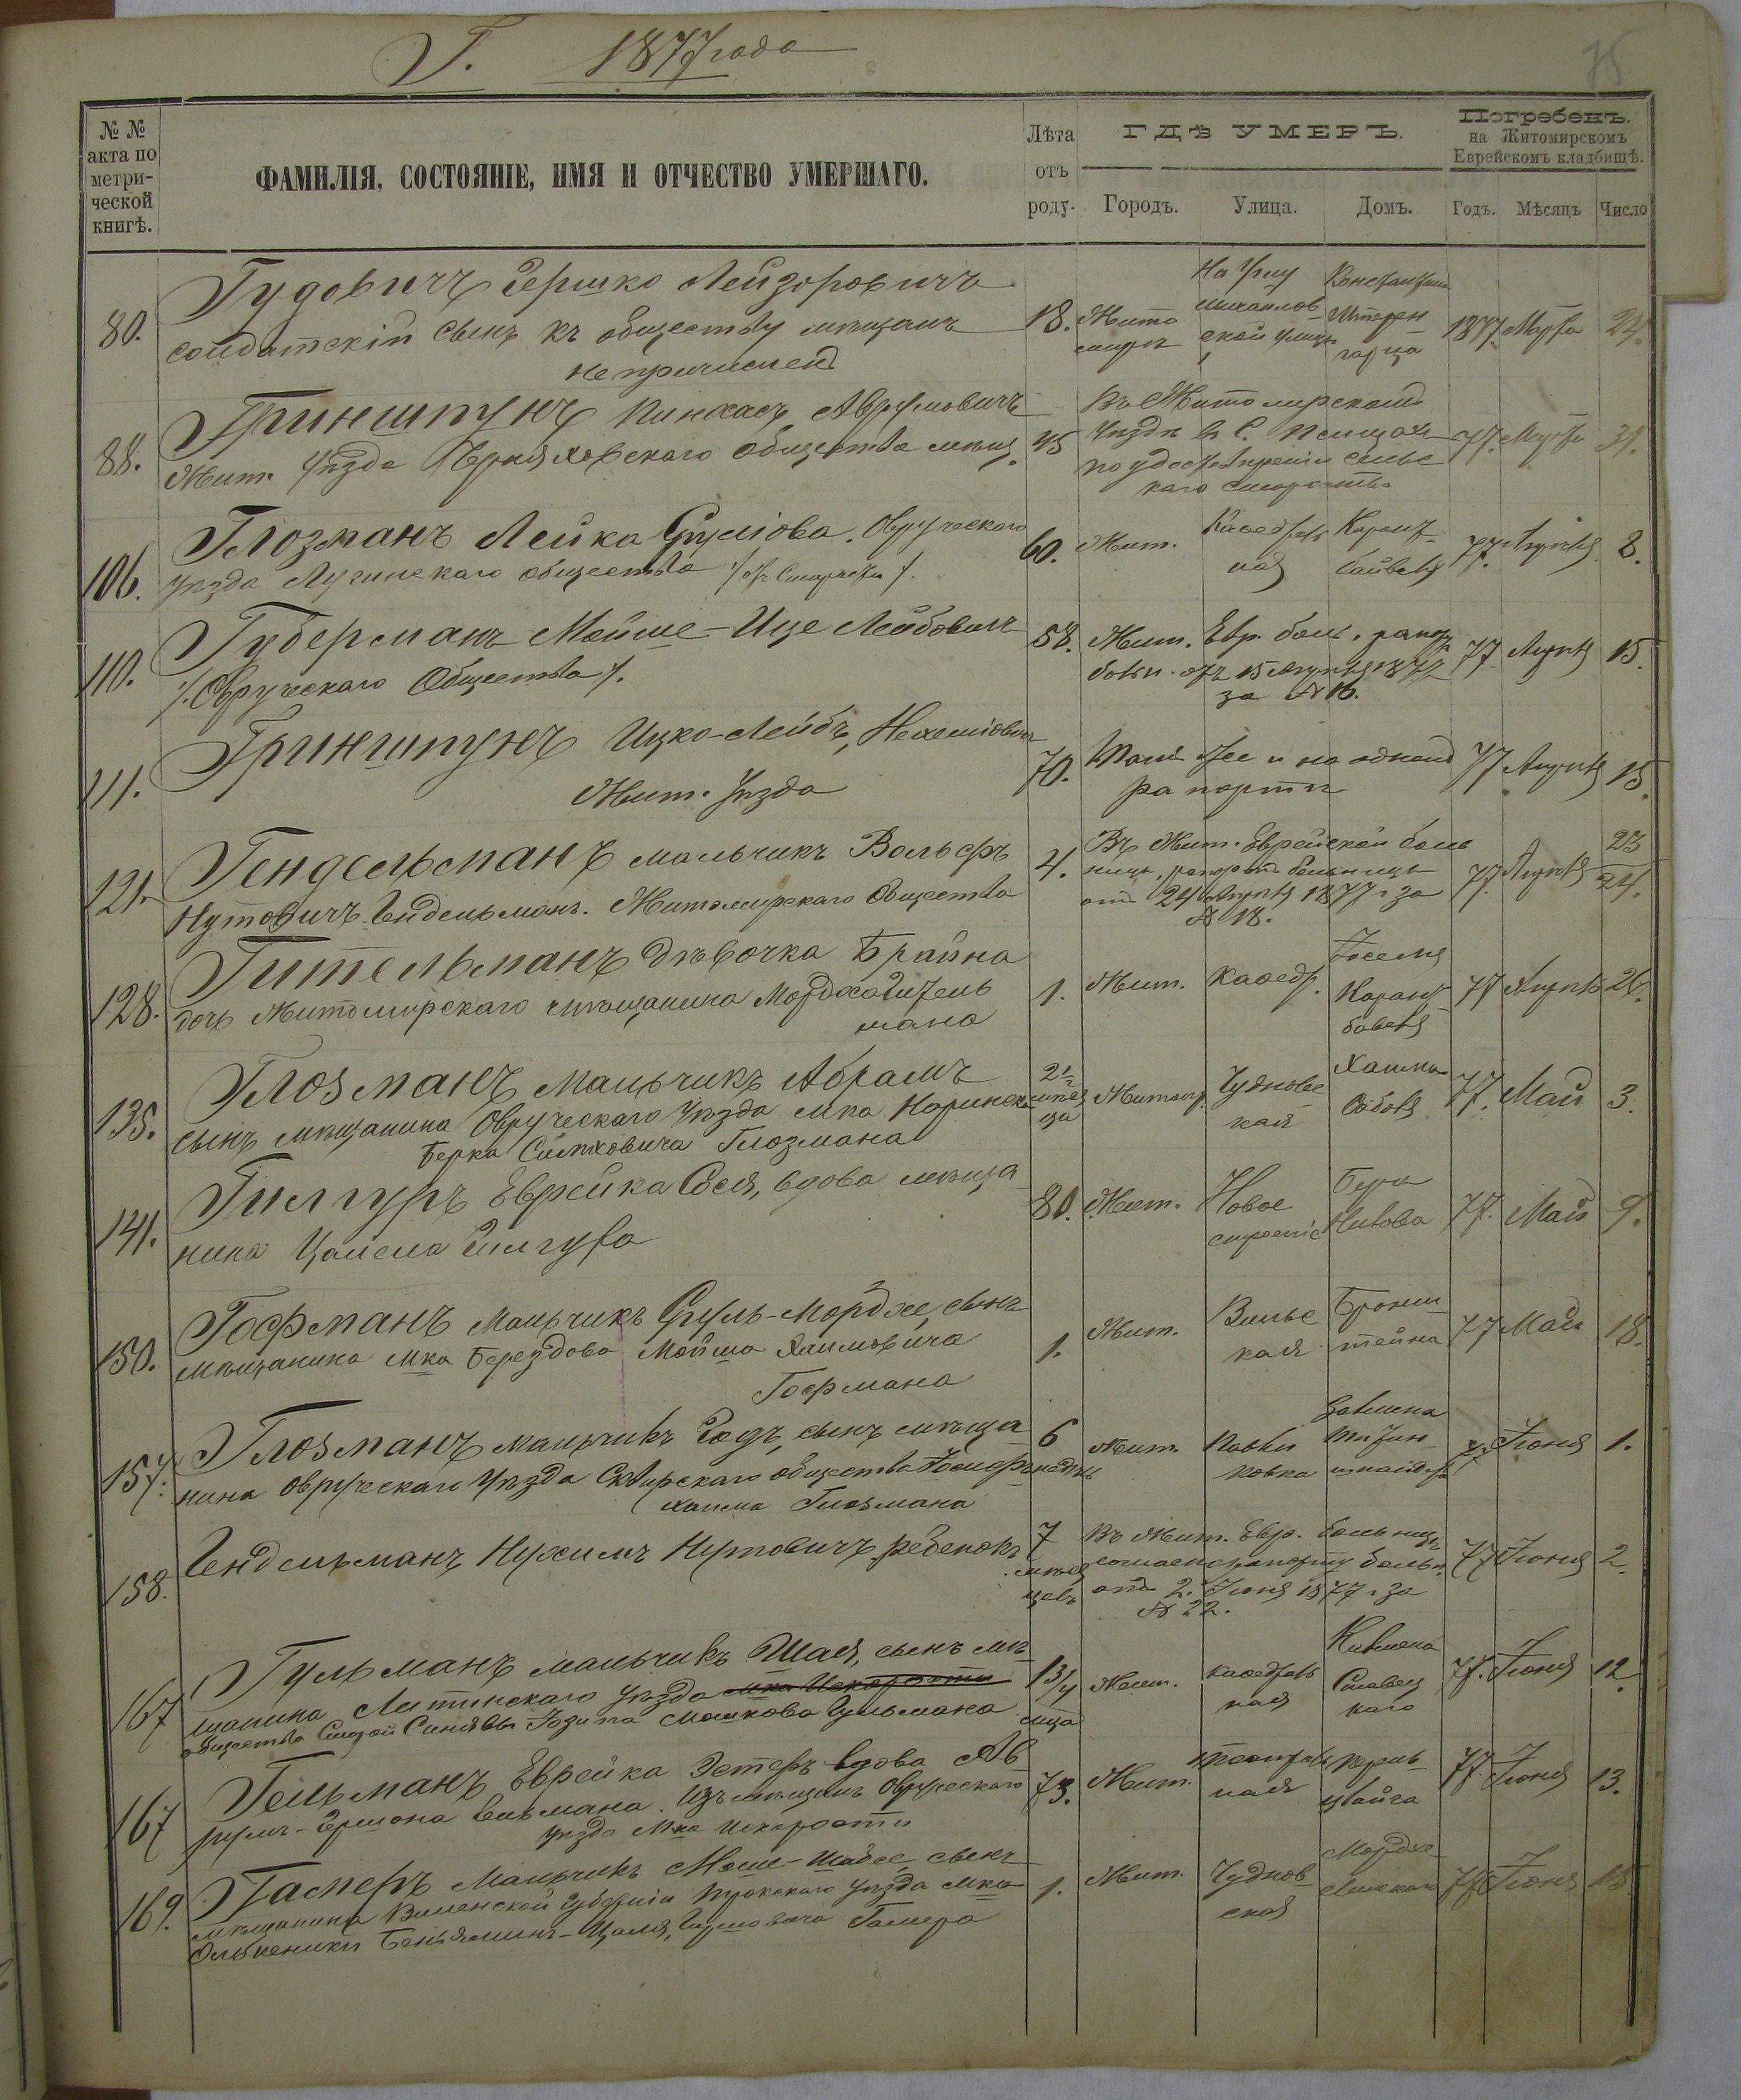 Г. 1877 года
75
№ №
акта по
метри-
ческой
книгѣ.
ФАМИЛІЯ, СОСТОЯНІЕ, ИМЯ И ОТЧЕСТВО УМЕРШАГО.
Лѣта
отъ
роду.
ГДѢ УМЕРЪ.
Городъ. Улица. Домъ.
Погребенъ.
на Житомирскомъ
Еврейскомъ кладбищѣ.
Годъ. Мѣсяцъ Число
80. Гудовичъ Гершко Лейзоровичъ
солдатскій сынъ къ обществу мѣщанъ
не причислен
18. Жито
миръ
На углу
Михайлов
ской улицы
1877. Марта 24.
88. Гринштунъ Пинхасъ Аврумовичъ
Жит. уѣзда Черняховскаго общества мѣщ.
45
Въ Житомирскомъ
уѣздѣ в с.
по удостовѣренію сельс
каго старосты
77. Марта 31.
106. Глозманъ Лейка Сруліова. Овручскаго
уѣзда Лугинскаго общества
60. Жит. Каѳедраль
ная
77. Апрѣля 8.
110. Губерманъ Мойше-Ице Лейбовичъ
/. Овручскаго Общества /.
58. Жит. Евр. боль. рапор.
больн. отъ 15 Апрѣля 1877
за № 16.
77. Апрѣля 15.
111. Гринштунъ Ицко-Лейбъ, Нехеміович
Жит. Уѣзда
70. Тамъ же и на одномъ
рапортѣ
77 Апрѣля 15.
121. Гендельманъ мальчикъ Вольфъ
Нутовичъ Гендельманъ. Житомирскаго Общества
4. Въ Жит. Еврейской боль
ницѣ, рапортъ больницы
отъ 24 Апрѣля 1877 г за
№ 18.
77. Апрѣля 23
24.
128. Гительманъ дѣвочка Брайна
дочь Житомирскаго мѣщанина Мордха Гитель
мана
1. Жит. Каѳедр.
77 Апрѣля 26.
135. Глозманъ мальчикъ Абрамъ
сынъ мѣщанина Овручскаго Уѣзда мка Норинска
Берка Глозмана
2½
мѣся
ца
Житомир. Чудновс
кая
77. Май 3.
141. Гилгуръ Еврейка Сося, вдова мѣща
нина Цалела Гилгура
80. Жит. Новое
строеніе
77. Май 9.
150. Гофманъ мальчикъ Сруль-Мордхе, сынъ
мѣщанина мка Берездова Мойша Хаимовича
Гофмана
1. Жит. Вильс
кая
Бронш
тейна
77 Май 18.
157. Глозманъ мальчикъ Гадъ, сынъ мѣща
нина Овручскаго Уѣзда общества Іосифъ
Хаима Глозмана
6
недѣль
Жит. Павли
ковка
77 Іюня 1.
158. Гендельманъ Нухимъ Нутовичъ ребенокъ
7
мѣся
цевъ
Въ Жит. Евр. больницѣ
согласно рапорту больн.
отъ 2. Іюня 1877 г за
№ 22.
77 Іюня 2.
167 Гульманъ мальчикъ Шая, сынъ мѣ
щанина Литинскаго уѣзда мка Искорости
общества Старой Синявы Мошкова Гульмана
1¾
мца
Жит. Каѳедраль
ная
77. Іюня 12.
167 Гельманъ Еврейка Эстеръ вдова Ав
румъ-Гершона Гельмана. Изъ мѣщанъ Овручскаго
уѣзда Мка Искорости
73. Жит. Театраль
ная
77. Іюня 13.
169. Гамеръ Мальчикъ Моше-Шабсе, сынъ
мѣщанина Виленской губерніи Трокскаго уѣзда мка
Олькеники Беньяминъ-Цаля, Гамера
1. Жит. Чуднов
ская
77 Іюня 15.